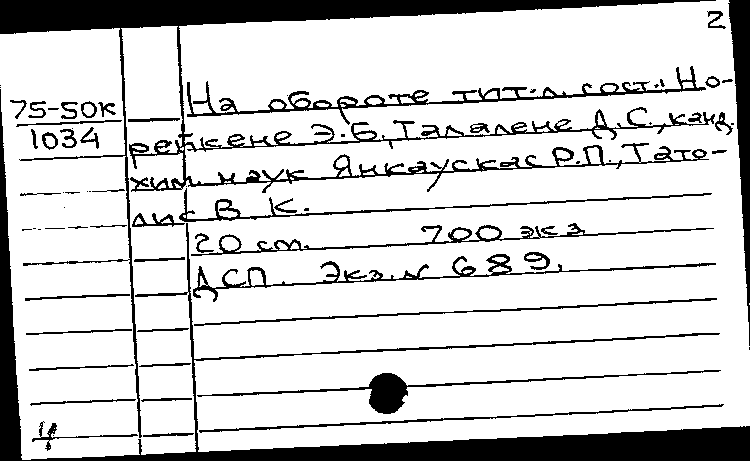 2
75-50к
1034
На обороте тит.л. сост.: Но-
рейкене Э.Б., Талалене Д.С., канд.
хим. наук Янкаускас Р.П., Тато-
лис В. К.
20 см. 700 экз
ДСП. Экз. № 689.